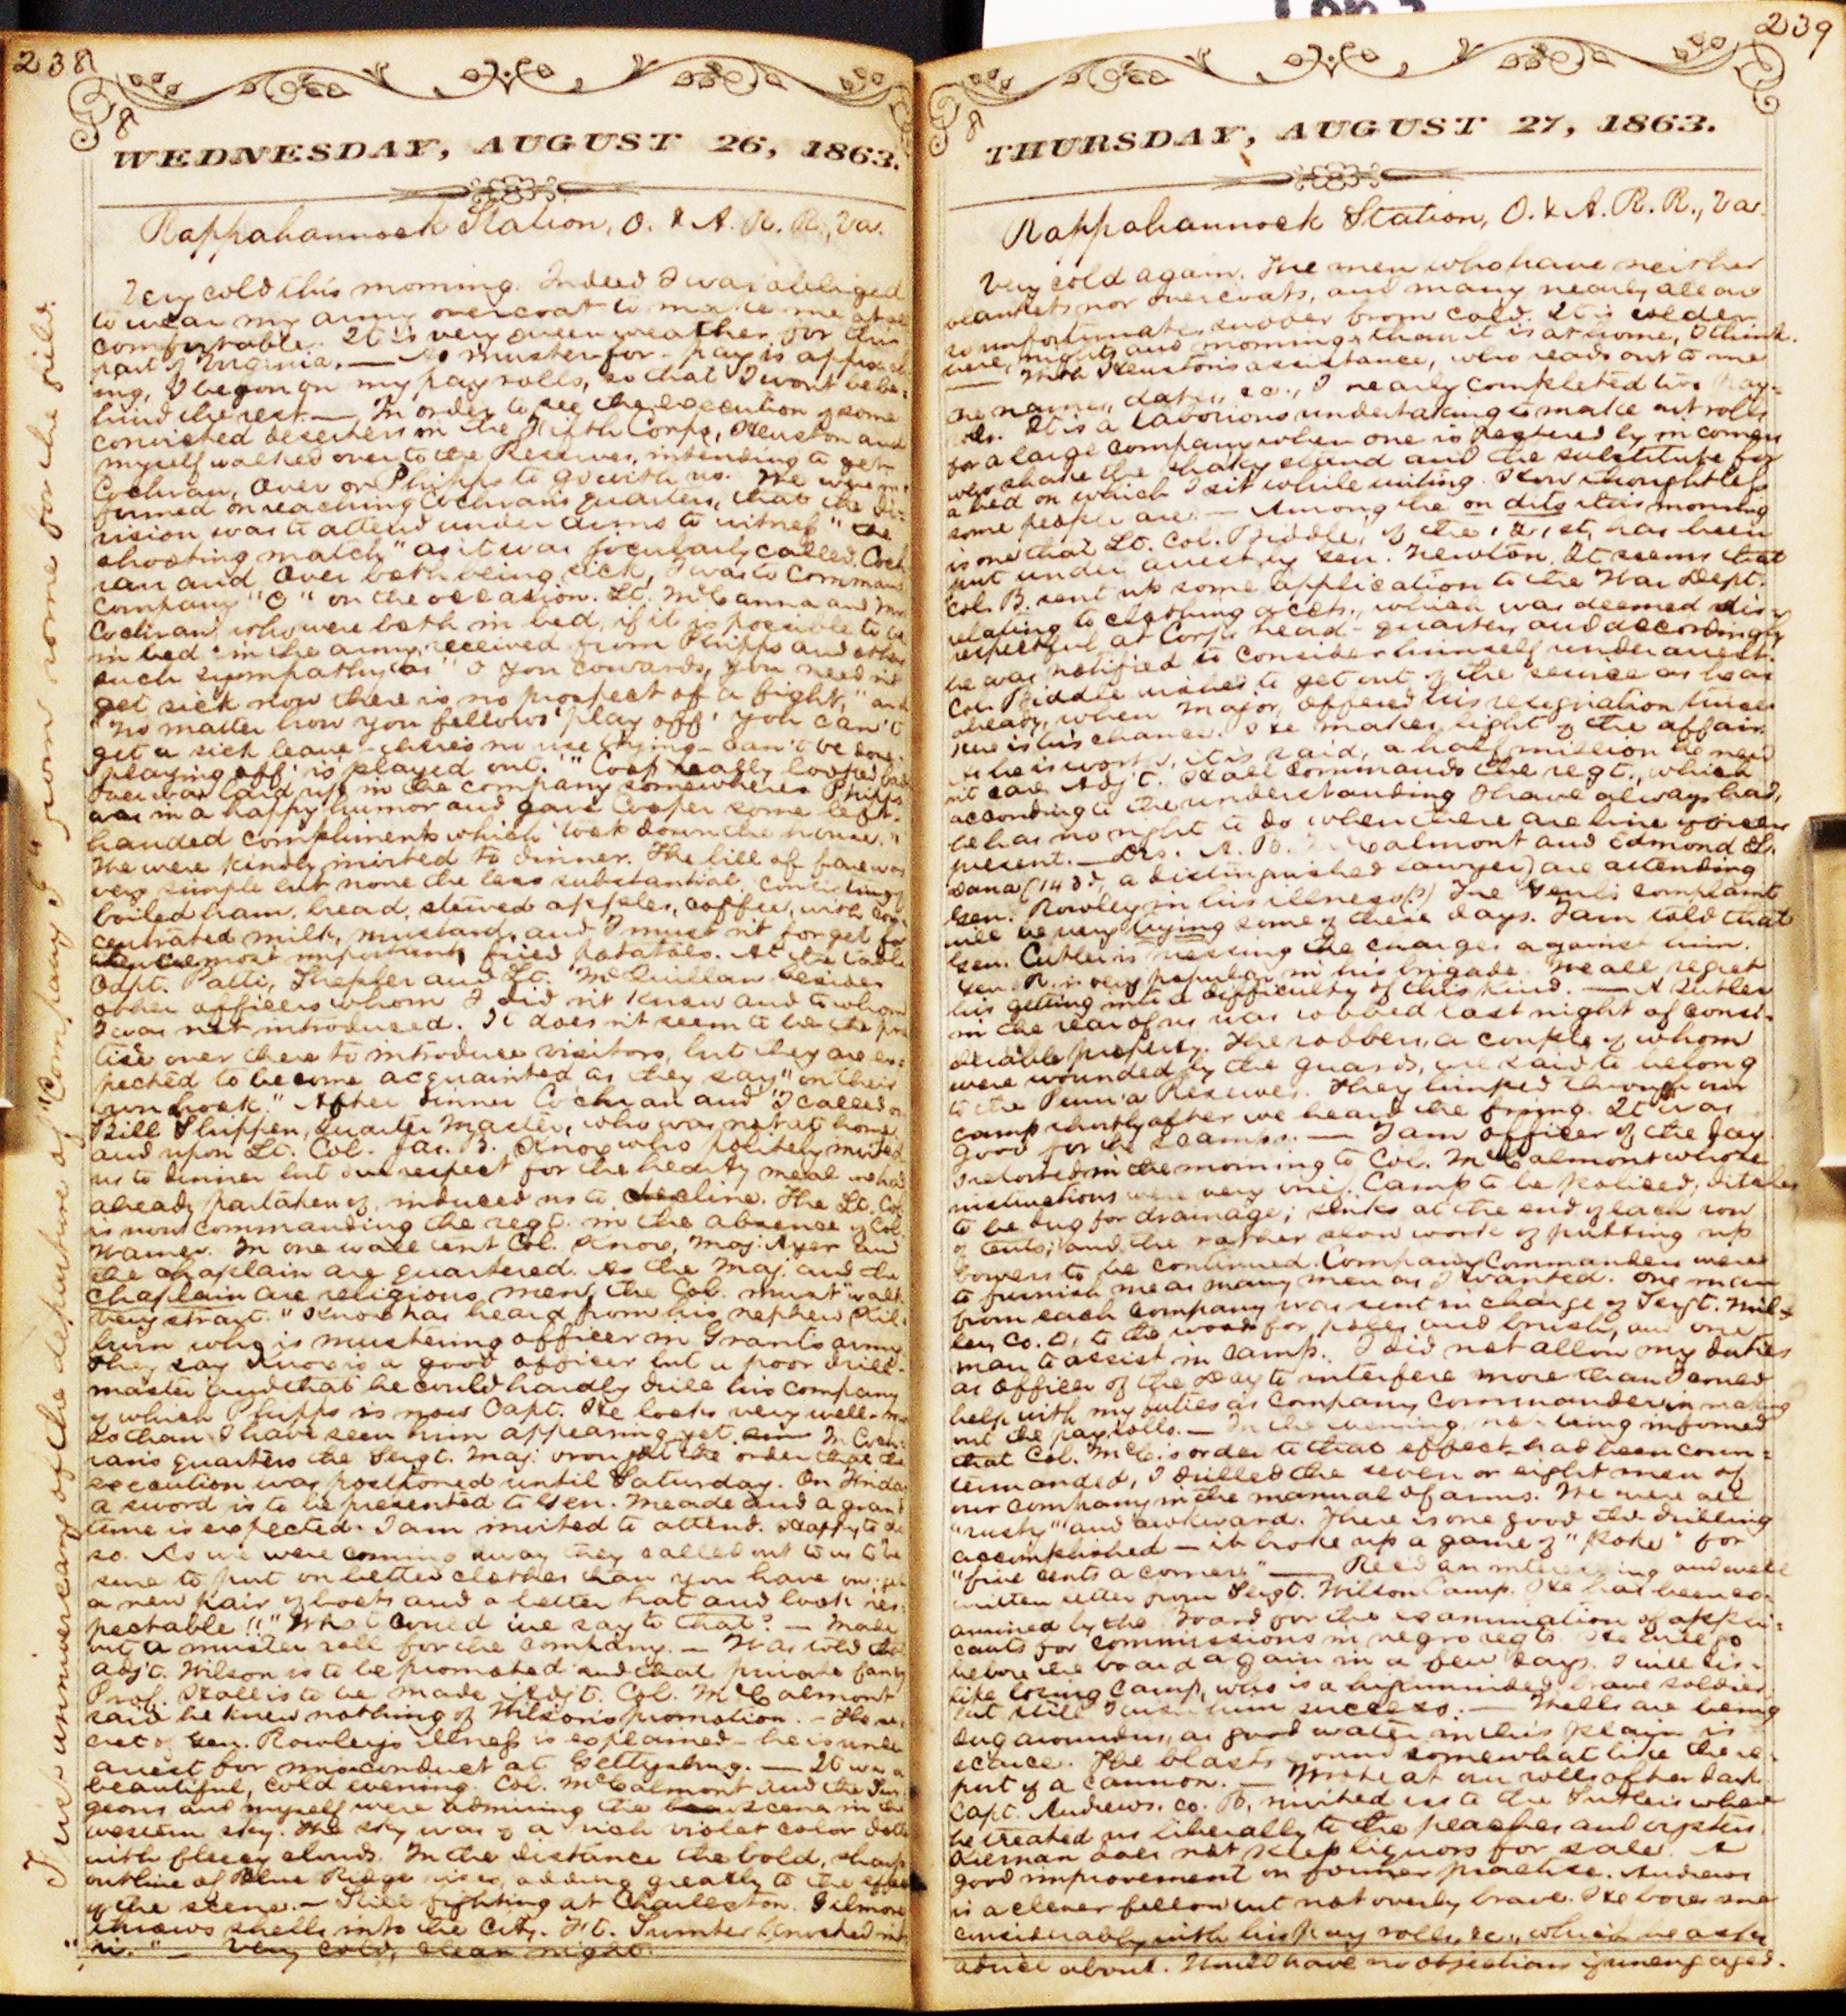 238
8
WEDNESDAY, AUGUST 26, 1863.
Rappahannock Station, O. & A. R. R., Va.
Very cold this morning. Indeed I was obliged
to wear my army overcoat to make me at all
comfortable. It is very queer weather for this
part of Virginia. — As muster-for-pay is approach
ing, I began on my pay rolls, so that I wont be be-
hind the rest. — In order to see the execution of some
convicted deserters in the Fifth Corps, Heuston and
myself walked over to the Reserves, intending to get
Cochran, Over or Phipps to go with us. We were in-
formed on reaching Cochran's quarters, that the di-
vision was to attend under arms to witness "the
shooting match" as it was jocularly called. Coch
ran and Over both being sick, I was to command
Company "C" on the occasion. Lt. McCanna and
Cochran, who were both in bed, if it is possible to be
in bed in the army, received from Phipps and others
such sympathy as "O you cowards, you need n't
get sick now there is no prospect of a fight," and
"No matter how you fellows 'play off' you can't
get a sick leave – there's no use trying – can't be done.
'playing off' is played out." Coop really looked bad.
Over was laid up in the company somewhere. Phipps
was in a happy humor and gave Cooper some left-
handed compliments which "took down the house."
We were kindly invited to dinner. The bill of fare was
very simple but none the less substantial consisting of
boiled ham, bread, stewed apples, coffee, with con-
centrated milk, mustard, and I must n't forget
the most important, fried potatoes. At the table
Capt. Patti, Shepler and Lt. McQuillan besides
other officers whom I did n't know and to whom
I was not introduced. It does n't seem to be the prac
tise over there to introduce visitors, but they are ex-
pected to become acquainted as they say "on their
own hook." After dinner Cochran and I called on
Bill Shippen, Quarter Master, who was not at home,
and upon Lt. Col. Jas. B. Knox who politely invited
us to dinner but our respect for the hearty meal we had
already partaken of, induced us to decline. The Lt. Col.
is now commanding the regt. in the absence of Col.
Warner. In one wall tent Col. Knox, Maj. Ayer and
the chaplain are quartered. As the Maj. and the
chaplain are religious men, the Col. must "walk
very strait." Knox has heard from his nephew Kil-
burn who is mustering officer in Grant's army
They say Knox is a good officer but a poor drill-
master and that he could hardly drill his company
of which Phipps is now Capt. He looks very well – more
so than I have seen him appearing yet. In Coch-
ran's quarters the Sergt. Maj. brought the order that the
execution was postponed until Saturday. On Friday
a sword is to be presented to Gen. Meade and a grand
time is expected. I am invited to attend. Happy to do
so. As we were coming away they called out to us to "be
sure to put on better clothes than you have on; get
a new pair of boots and a better hat and look res-
pectable!!" What could we say to that? — Made
out a muster roll for the company. — Was told that
Adj't. Wilson is to be promoted and that private
Prof. Hall is to be made Adj't. Col. McCalmont
said he knew nothing of Wilson's promotion. – The se-
cret of Gen. Rowley's illness is explained – he is under
arrest for misconduct at Gettysburg. — It was a
beautiful, cold evening. Col. McCalmont and the Sur-
geons and myself were admiring the scene in the
western sky. The sky was of a rich violet color
with fleecy clouds. In the distance the bold, sharp
outline of Blue Ridge rises, adding greatly to the effect
of the scene. – Still fighting at Charleston. Gilmore
throws shells into the City. Ft. Sumter
— Very cold, clear night.
This anniversary of the departure of "Company I" from home for the field.
239
8
THURSDAY, AUGUST 27, 1863.
Rappahannock Station, O. & A. R. R., Va.
Very cold again. The men who have neither
blankets nor overcoats, and many nearly all are
so unfortunate, suffer from cold. It is colder
here, nights and mornings than it is at home, I think.
— With Heuston's assistance, who reads out to me
the names, dates, &c., I nearly completed two pay-
rolls. It is a laborious undertaking to make out rolls
for a large company when one is pestered by in comers
who shake the shaky stand and the substitute for
a bed on which I sit while writing. How thoughtless
some people are. — Among the on dits this morning
is one that Lt. Col. Biddle, of the 121st, has been
put under arrest by Gen. Newton. It seems that
Col. B. sent up some application to the War Dept.
relating to clothing accts., which was deemed disre-
spectful at Corps head-quarters and accordingly
he was notified to consider himself under arrest.
Col. Biddle wishes to get out of the service as he has
already, when Major, offered his resignation twice.
Here is his chance. He makes light of the affair.
As he is worth, it is said, a half million he need
n't care. Adj't. Hall commands the regt., which
according to the understanding I have always had,
he has no right to do when there are line officers
present. — Drs. A. B. McCalmont and Edmond L.
Dana (143d, a distinguished lawyer) are attending
Gen. Rowley in his illness (?) The Gen's complaint
will be very trying some of these days. I am told that
Gen. Cutler is pressing the charges against him.
Gen. R. is very popular in his brigade. We all regret
his getting into a difficulty of this kind. — A Sutler
in the rear of us was robbed last night of consi-
derable property. The robbers, a couple of whom
were wounded by the guards, are said to belong
to the Penn'a Reserves. They limped through our
camp shortly after we heard the firing. It was
good for the scamps. — I am officer of the day
I reported in the morning to Col. McCalmont whose
instructions were very brief. Camp to be policed; ditches
to be dug for drainage; sinks at the end of each row
of tents; and the rather slow work of putting up
bowers to be continued. Company Commanders were
to furnish me as many men as I wanted. One man
from each company was sent in charge of Sergt. Mil-
ler, Co. D, to the woods for poles and brush, and one
man to assist in camp. I did not allow my duties
as officer of the day to interfere more than I could
help with my duties as company commander in making
out the pay rolls. — In the evening, not being informed
that Col. McC.'s order to that effect had been coun-
termanded, I drilled the seven or eight men of
our company in the manual of arms. We were all
"rusty" and awkward. There is one good the drilling
accomplished – it broke up a game of "poke" for
"five cents a corner." — Rec'd an interesting and well
written letter from Sergt. Wilson Camp. He has been ex-
amined by the Board for the examination of appli-
cants for commissions in negro regts. He will go
before the board again in a few days. I will dis-
like losing Camp, who is a highminded, brave soldier
but still I wish him success. — Wells are being
dug around us, as good water in this plain is
scarce. The blasts sound somewhat like the re-
port of a cannon. — Wrote at our rolls after dark
Capt. Andrews, Co. B, invited us to the Sutler's where
he treated us liberally to the peaches and oysters.
Kiernan does not keep liquors for sale. A
good improvement on former practice. Andrews
is a clever fellow but not overly brave. He bores me
considerably with his pay rolls, &c., which he asks
advice about. I would have no objections if unengaged.